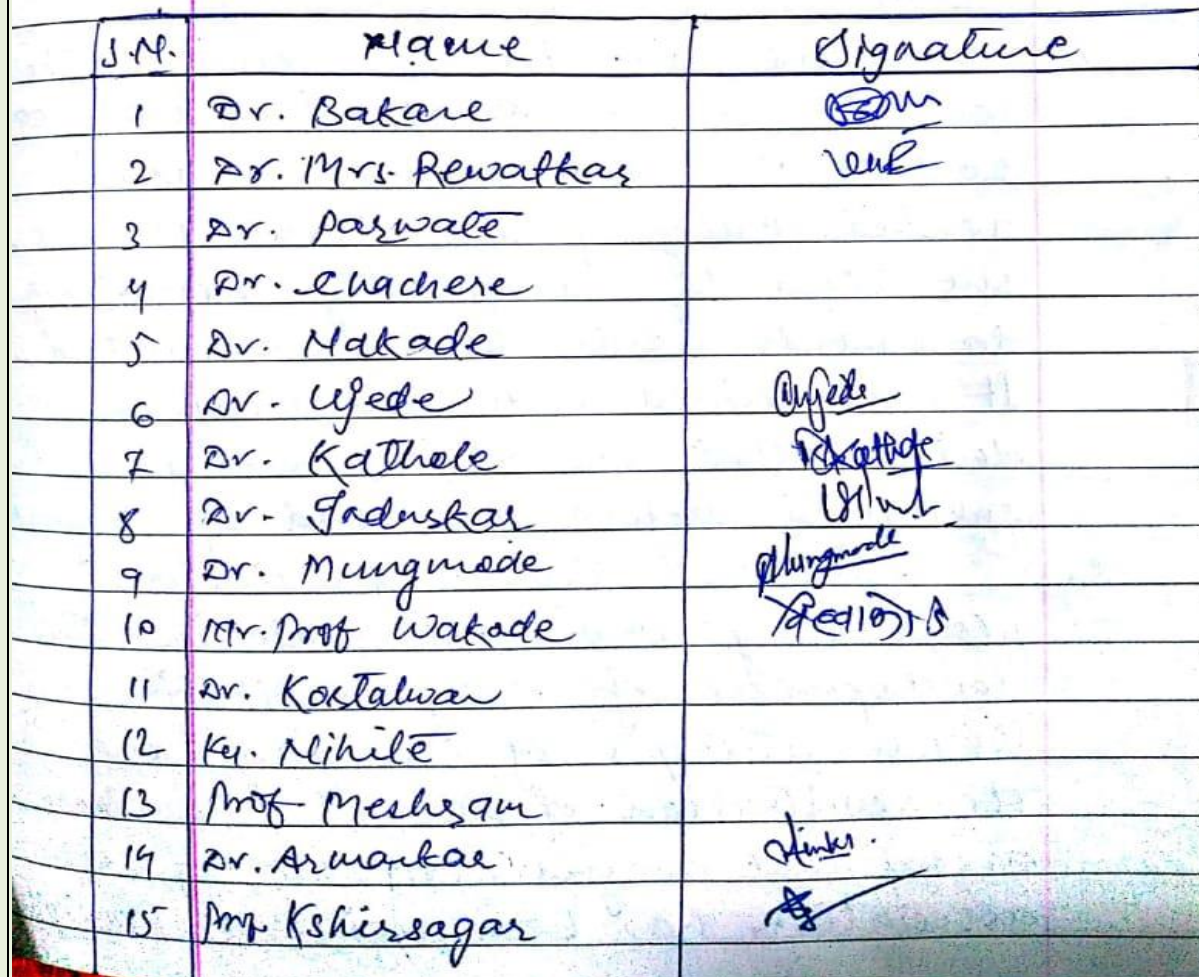 S.N. Name Signature
1 Dr. Bakare
2 Dr. Mrs. Rewatkar
3 Dr. Parwate
4 Dr. Chachere
5 Dr. Makade
6 Dr. Ujede Ujede
7 Dr. Kathole RKathole
8 Dr. Induskar
9 Dr. Mungmode Mungmode
10 Mr. Prof Wakode
11 Dr. Kostalwar
12 Ku. Nihite
13 Prof Meshram
14 Dr. Armarkar
15 Prof. Kshirsagar